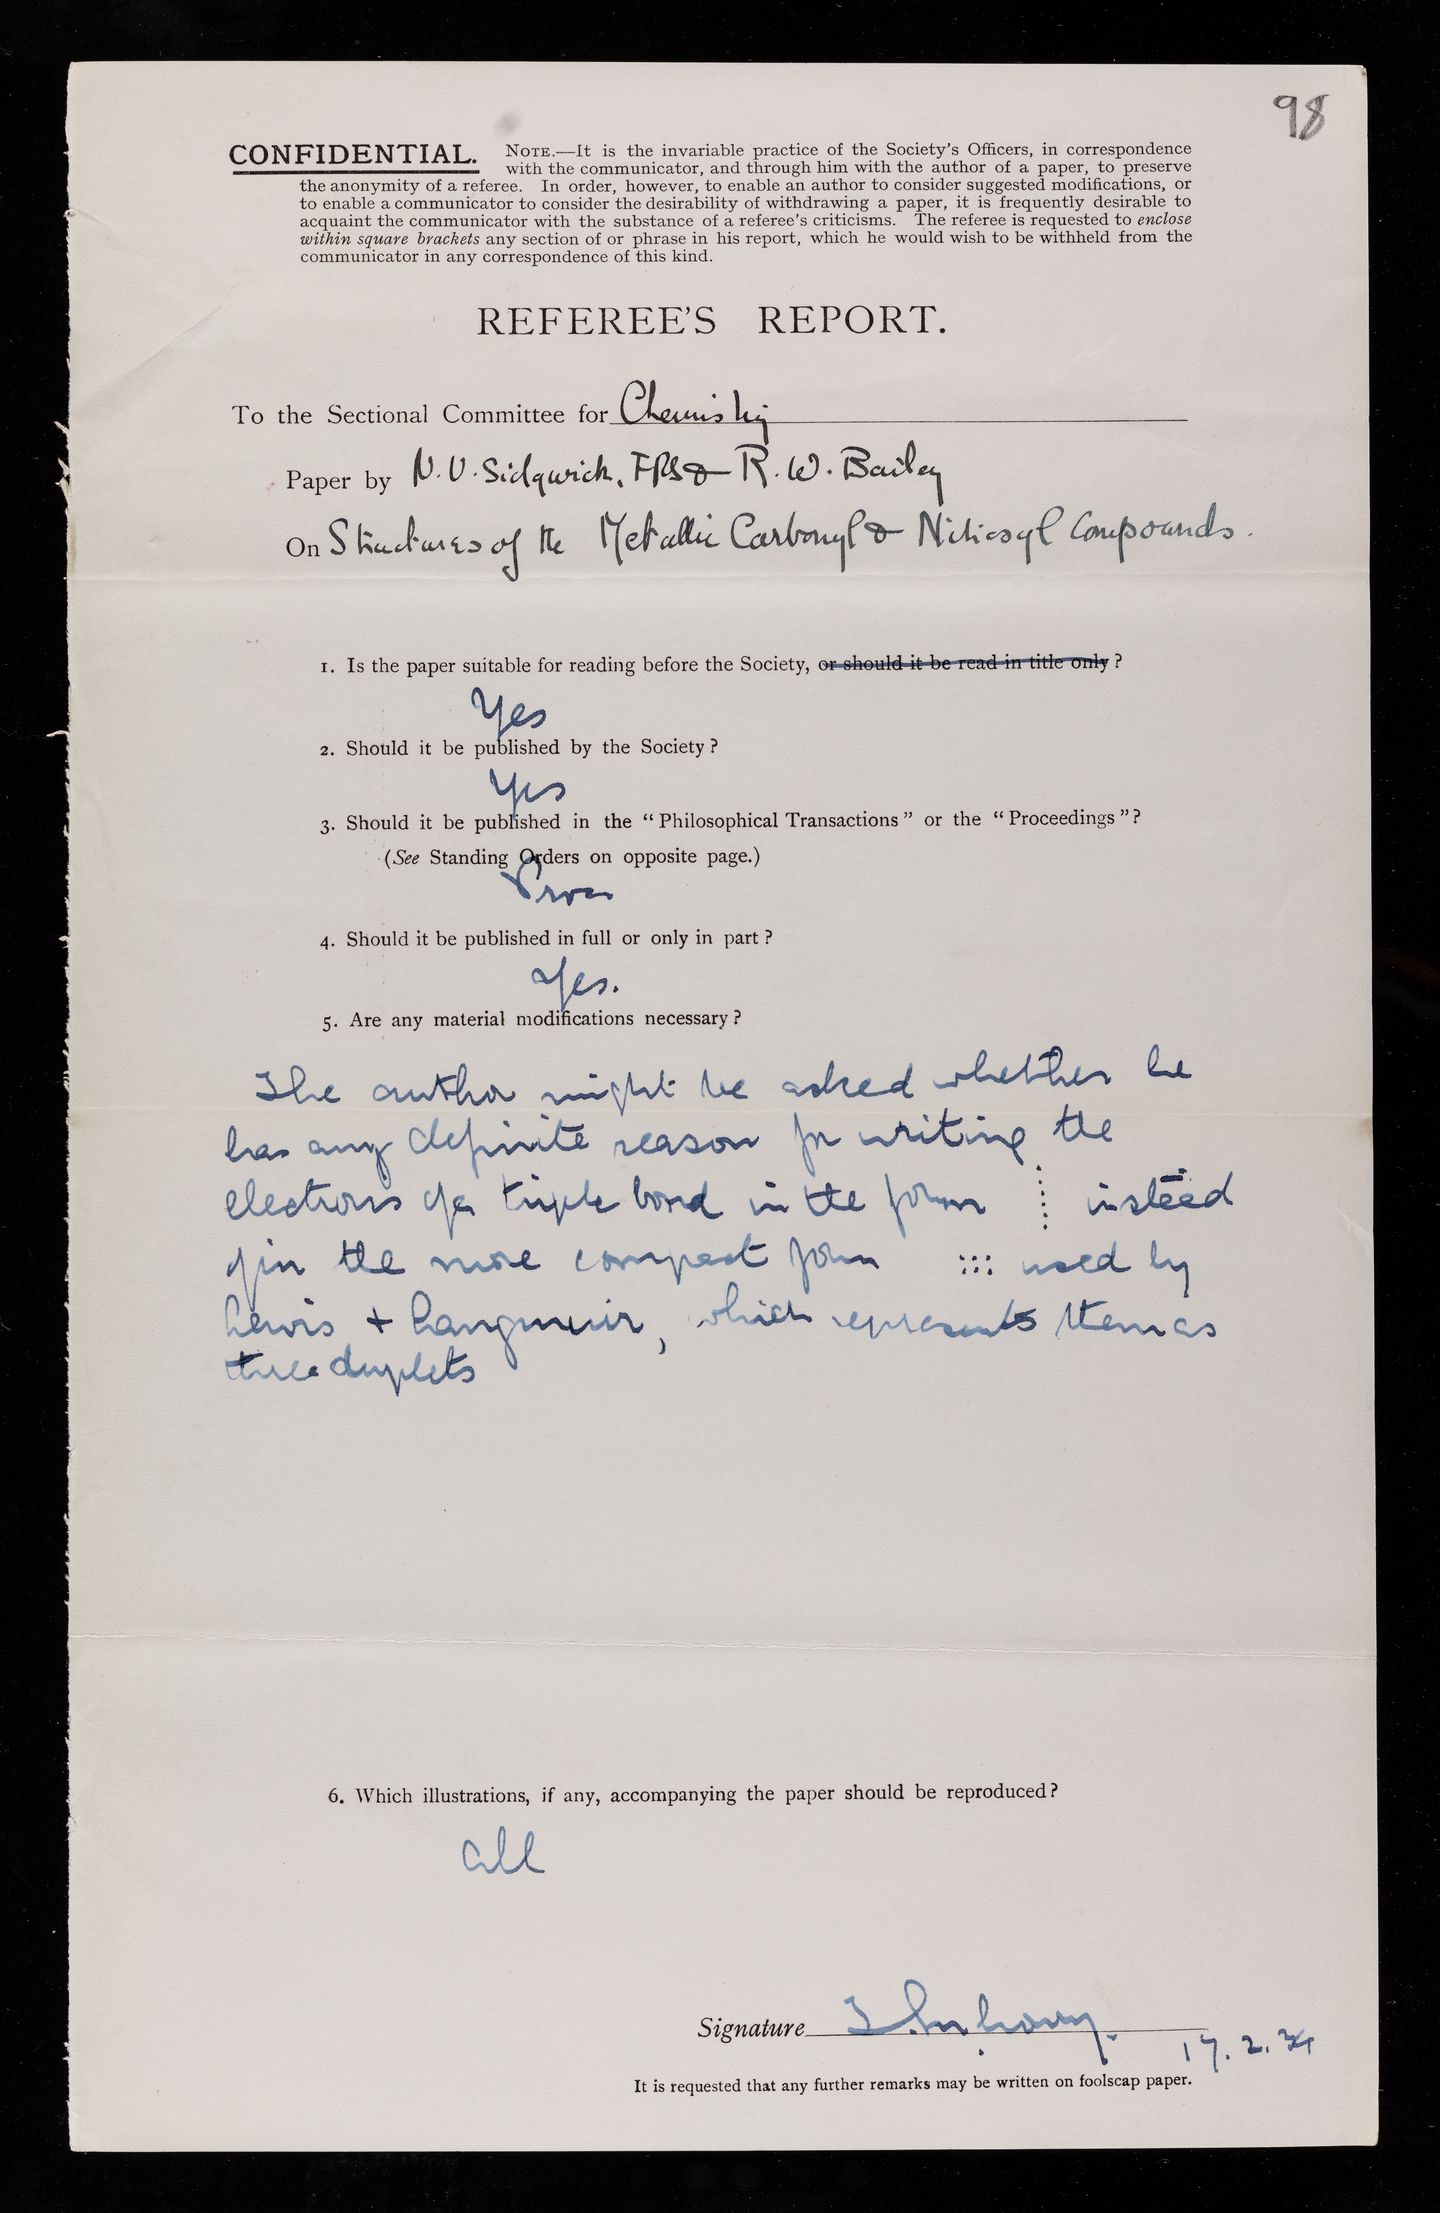 98
CONFIDENTIAL. NOTE.—It is the invariable practice of the Society's Officers, in correspondence
with the communicator, and through him with the author of a paper, to preserve
the anonymity of a referee. In order, however, to enable an author to consider suggested modifications, or
to enable a communicator to consider the desirability of withdrawing a paper, it is frequently desirable to
acquaint the communicator with the substance of a referee's criticisms. The referee is requested to enclose
within square brackets any section of or phrase in his report, which he would wish to be withheld from the
communicator in any correspondence of this kind.
REFEREE'S REPORT.
To the Sectional Committee for Chemistry
Paper by N. V. Sidgwick, FRS & R. W. Bailey
On Structures of the Metallic Carbonyl & Nitrosyl Compounds.
1. Is the paper suitable for reading before the Society, or should it be read in title only ?
Yes
2. Should it be published by the Society ?
Yes
3. Should it be published in the "Philosophical Transactions" or the "Proceedings" ?
(See Standing Orders on opposite page.)
Proc
4. Should it be published in full or only in part ?
Yes.
5. Are any material modifications necessary ?
The author might be asked whether he
has any definite reason for writing the
electrons of a triple bond in the form ⋮ instead
of in the more compact form ::: used by
Lewis & Langmuir, which represents them as
three duplets
6. Which illustrations, if any, accompanying the paper should be reproduced ?
All
Signature T. M. Lowry.
17. 2. 34
It is requested that any further remarks may be written on foolscap paper.